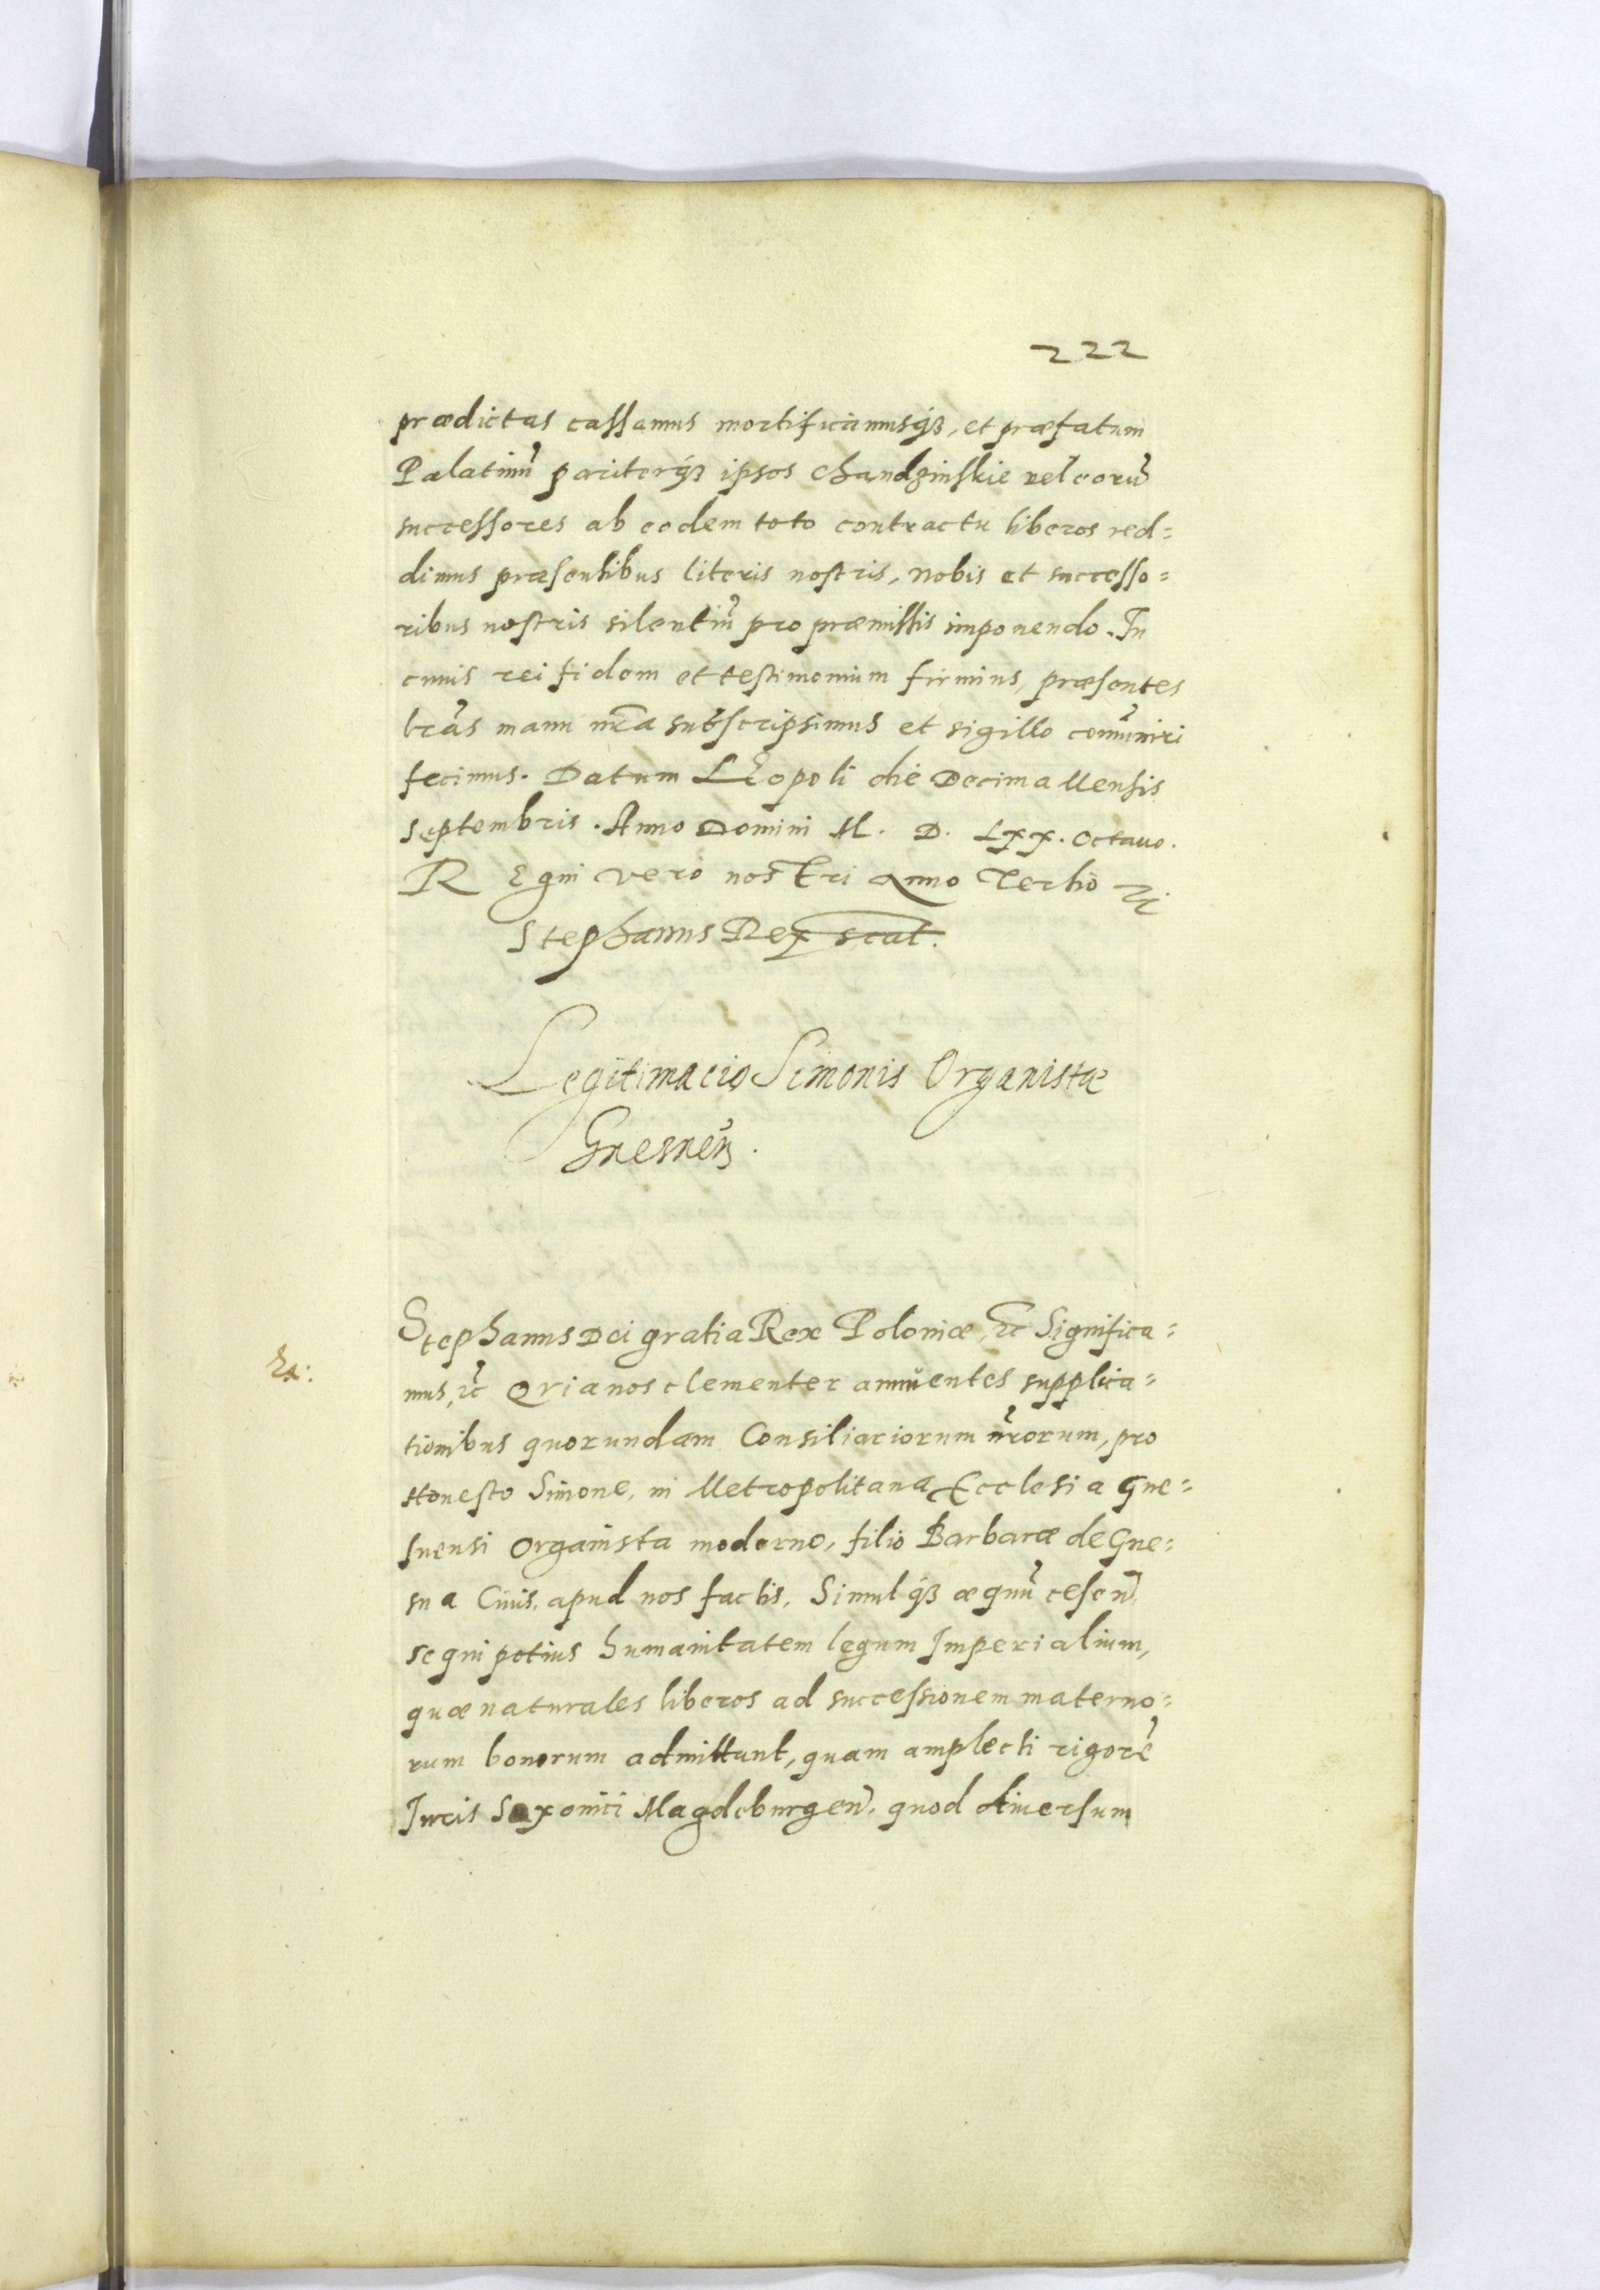 222
prædictas cassamus mortificamusq3, et præfatum
Palatinũ pariterq3 ipsos Chandzinskie vel eorũ
successores ab eodem toto contractu liberos red=
dimus præsentibus literis nostris, nobis et successo=
ribus nostris silentiũ pro præmissis imponendo. In
cuius rei fidem et testimonium firmius, præsentes
lrãs manu nr̃a subscripsimus et sigillo com̃uniri
fecimus. Datum LEopoli die Decima Mensis
Septembris. Anno Domini M. D. Lxx. octauo.
REgni vero nostri Anno Tertio
Stephanus Rex scat.
Legitimacio Simonis Organistæ
Gnesneñ.
Stephanus Dei gratia Rex Poloniæ, etc Significa=
mus, etc Qvia nos clementer annuentes supplica=
tionibus quorundam Consiliariorum nr̃orum, pro
Honesto Simone, in Metropolitana Ecclesia Gne=
snensi Organista moderno, filio Barbaræ de Gne=
sna Ciuis, apud nos factis. Simulq3 æquũ ceseñ,
sequi potius humanitatem legum Imperialium,
quæ naturales liberos ad successionem materno=
rum bonorum admittunt, quam amplecti rigorẽ
Iuris Saxonici Magdeburgeñ. quod diuersum